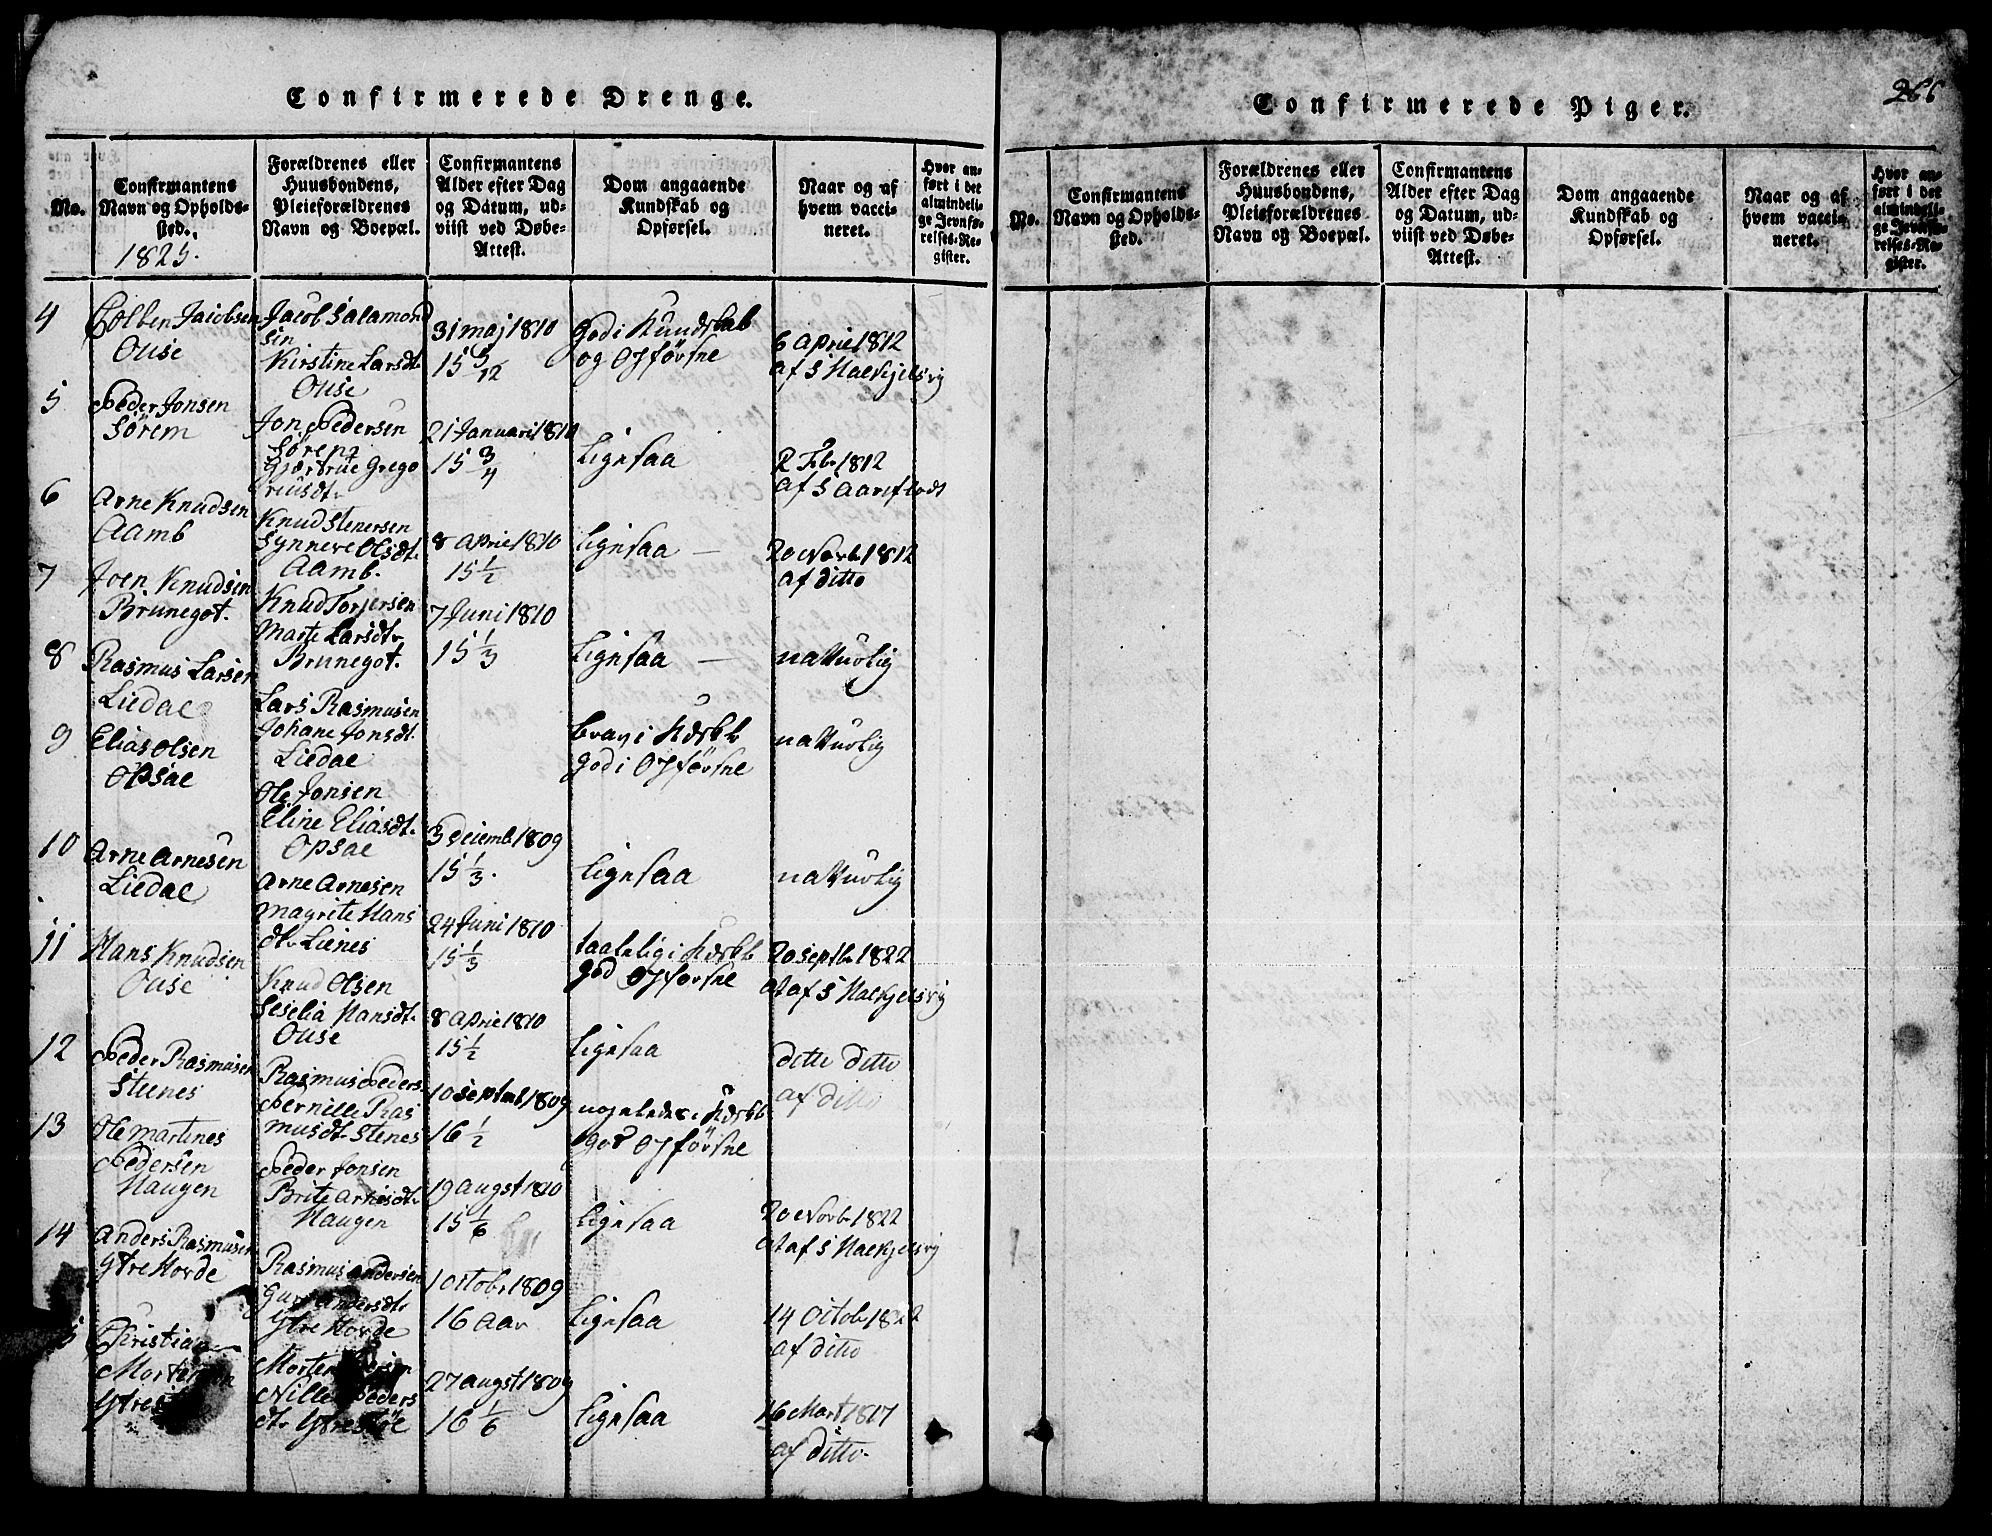 Confirmerede Drenge.
No.
Confirmantens
Navn og Opholds-
sted.
1825.
Forældrenes eller
Huusbondens,
Pleieforældrenes
Navn og Boepæl.
Confirmantens
Alder efter Dag
og Datum, ud-
viist ved Døbe-
Attest.
Dom angaaende
Kundskab og
Opførsel.
Naar og af
hvem vacci-
neret.
Hvor an-
ført i det
almindeli-
ge Jevnfø-
relses-Re-
gister.
4
Jacobsen
Ouse
Jacob Salamond
sen
Kirstine Larsdt.
Ouse
31 maj 1810
15 5/12
god i Kundskab
og Opførsne
6 April 1812
af S
5
Peder Jonsen
Sørem
Jon Pedersen
Sørem
Gjærtrue Grego
riusdt.
21 Januari 1810
15 3/4
ligesaa
2 Feb. 1812
af S Aarflodt
6
Arne Knudsen
Aamb
Knud Stenersen
Synneve Olsdt.
Aamb.
8 April 1810
15 1/2
ligesaa —
20 Novb. 1812
af ditto
7
Joen Knudsen
Brunegot.
Knud Torjersen
Marte Larsdt.
Brunegot.
7 Juni 1810
15 1/3
ligesaa —
naturlig
8
Rasmus Larsen
Liedal
Lars Rasmusen
Johane Jonsdt.
Liedal
brav i Kdskb
god i Opførsne
naturlig
9
Elias Olsen
Opsal
Ole Jonsen
Eline Eliasdt.
Opsal
3 Decemb 1809
15 1/3.
ligesaa
naturlig
10
Arne Arnesen
Liedal
Arne Arnesen
Magrite Hans
dt. Lienes
24 Juni 1810
15 1/3
taalelig i Kdskb
god Opførsne
20 Septb. 1822
at af S
11
Hans Knudsen
Ouse
Knud Olsen
Seselia Hansdt.
Ouse
8 April 1810
15 1/2
ligesaa
dette ditto
af ditto
12
Peder Rasmusen
Steenes
Rasmus Peders.
Pernille Ras
musdt. Stenes
10 Septmb 1809
16 1/2
i Kdskb
god Opførsne
13
Ole Martines
Pedersen
Haugen
Peder Jonsen
Brite Arnesdt.
Haugen
19 Augst 1810
15 1/6
ligesaa
20 Novb. 1822
at af S
14
Anders Rasmusen
Ytre Horde
Rasmus Andersen
Guri Andersdt.
Ytre Horde
1 Octobr 1809
16 Aar
ligesaa
14 Octobr 1822
af ditto
Christian
Mortensen
Morten
Nille Peders
dt. Ytrestøl
27 Augst 1809
16 1/6
ligesaa
16 Mart 1817
af ditto.
Confirmerede Piger.
266
No.
Confirmantens
Navn og Opholds-
sted.
Forældrenes eller
Huusbondens,
Pleieforældrenes
Navn og Boepæl.
Confirmantens
Alder efter Dag
og Datum, ud-
viist ved Døbe-
Attest.
Dom angaaende
Kundskab og
Opførsel.
Naar og af
hvem vacci-
neret.
Hvor an-
ført i det
almindeli-
ge Jevnfø-
relses-Re-
gister.